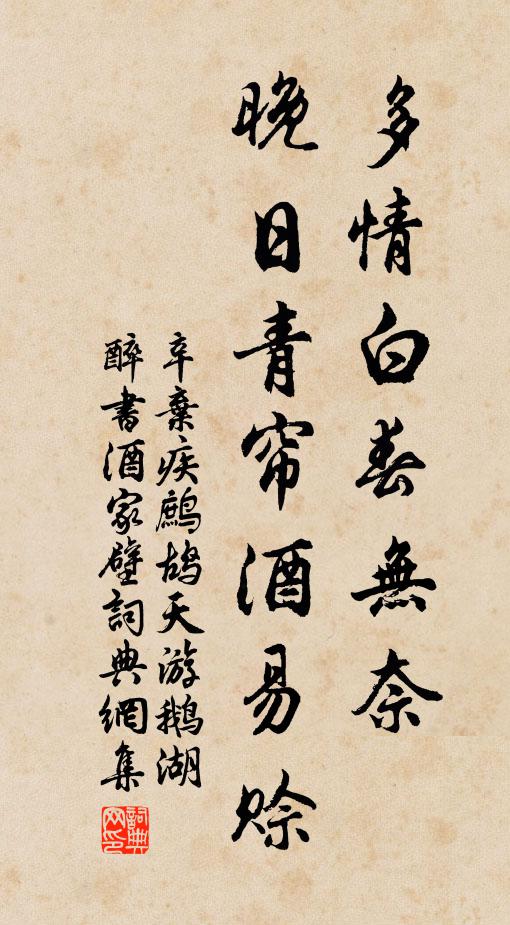 多情白春無奈
晚日青帘酒易赊
辛棄疾鷓鴣天游鹅湖
醉書酒家壁詞典網集
詞典网印